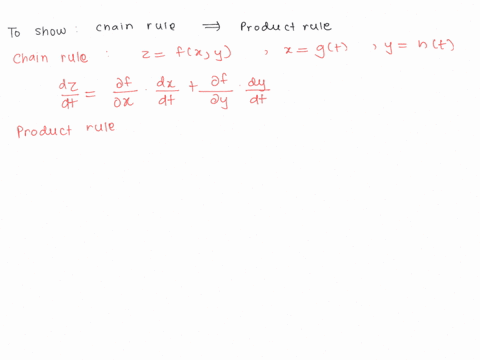 To show: chain rule ⟹ Product rule
Chain rule : z = f(x, y) , x = g(t) , y = h(t)
dz/dt = ∂f/∂x · dx/dt + ∂f/∂y · dy/dt
Product rule